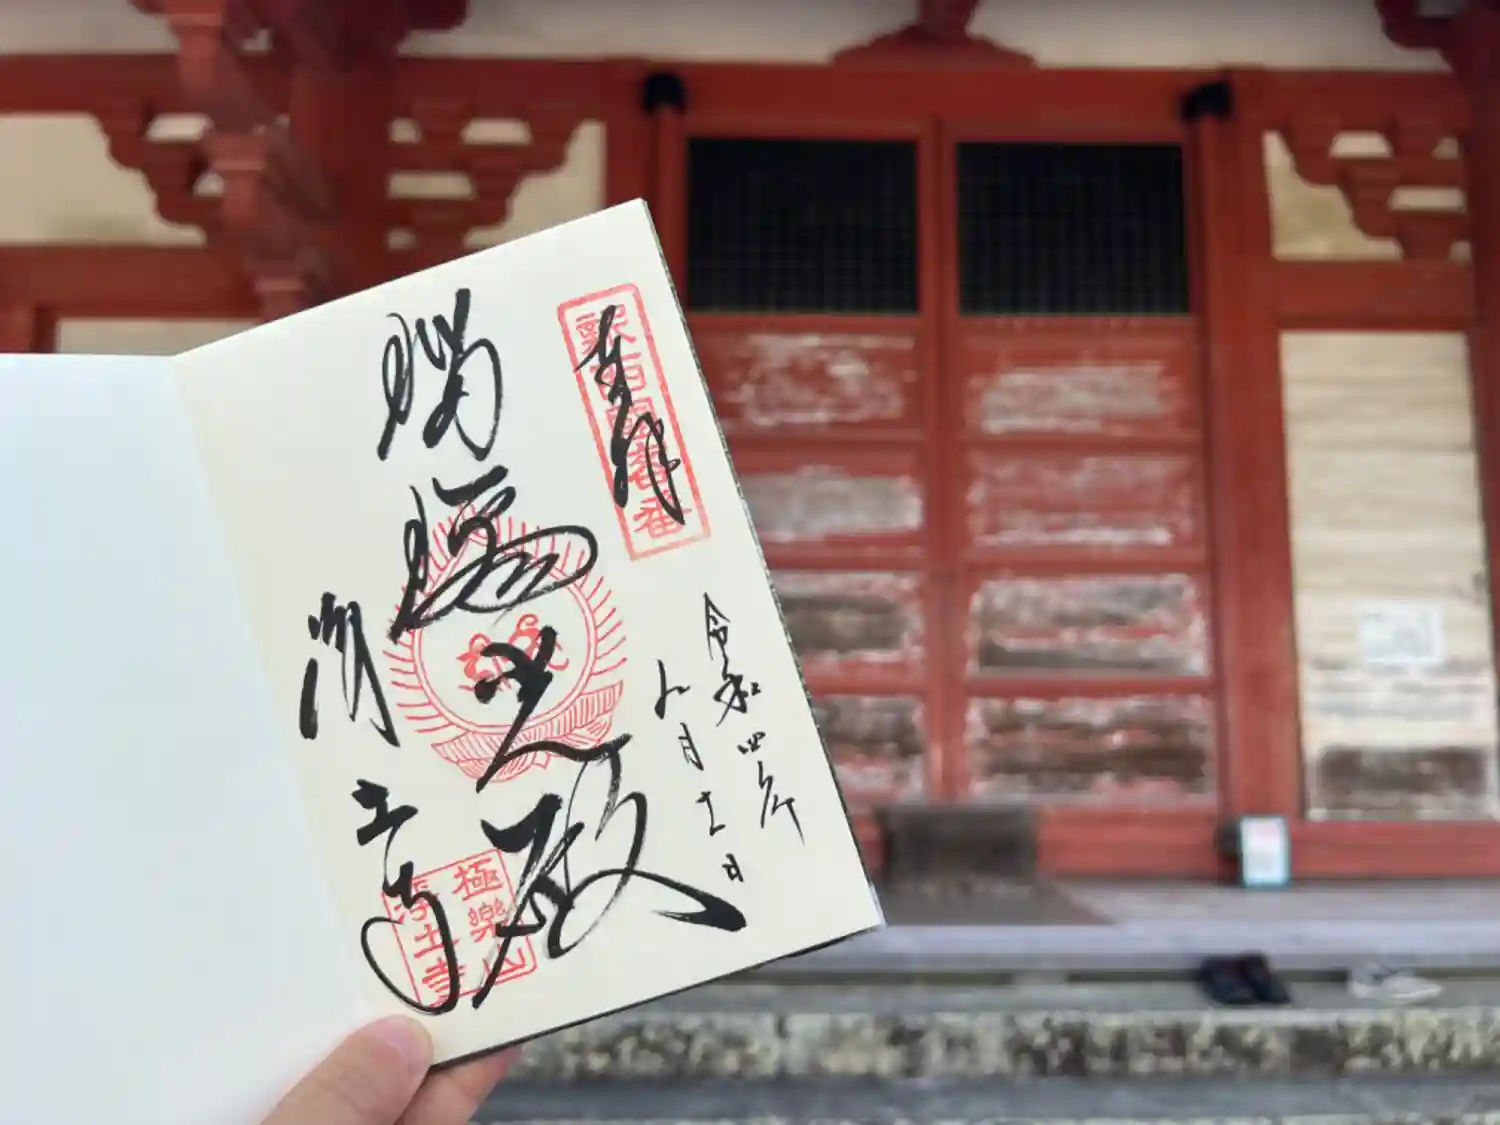 奉拝
新西國客番
令和四年
月十一日
瑠璃之殿
浄土寺
極樂山
浄土寺